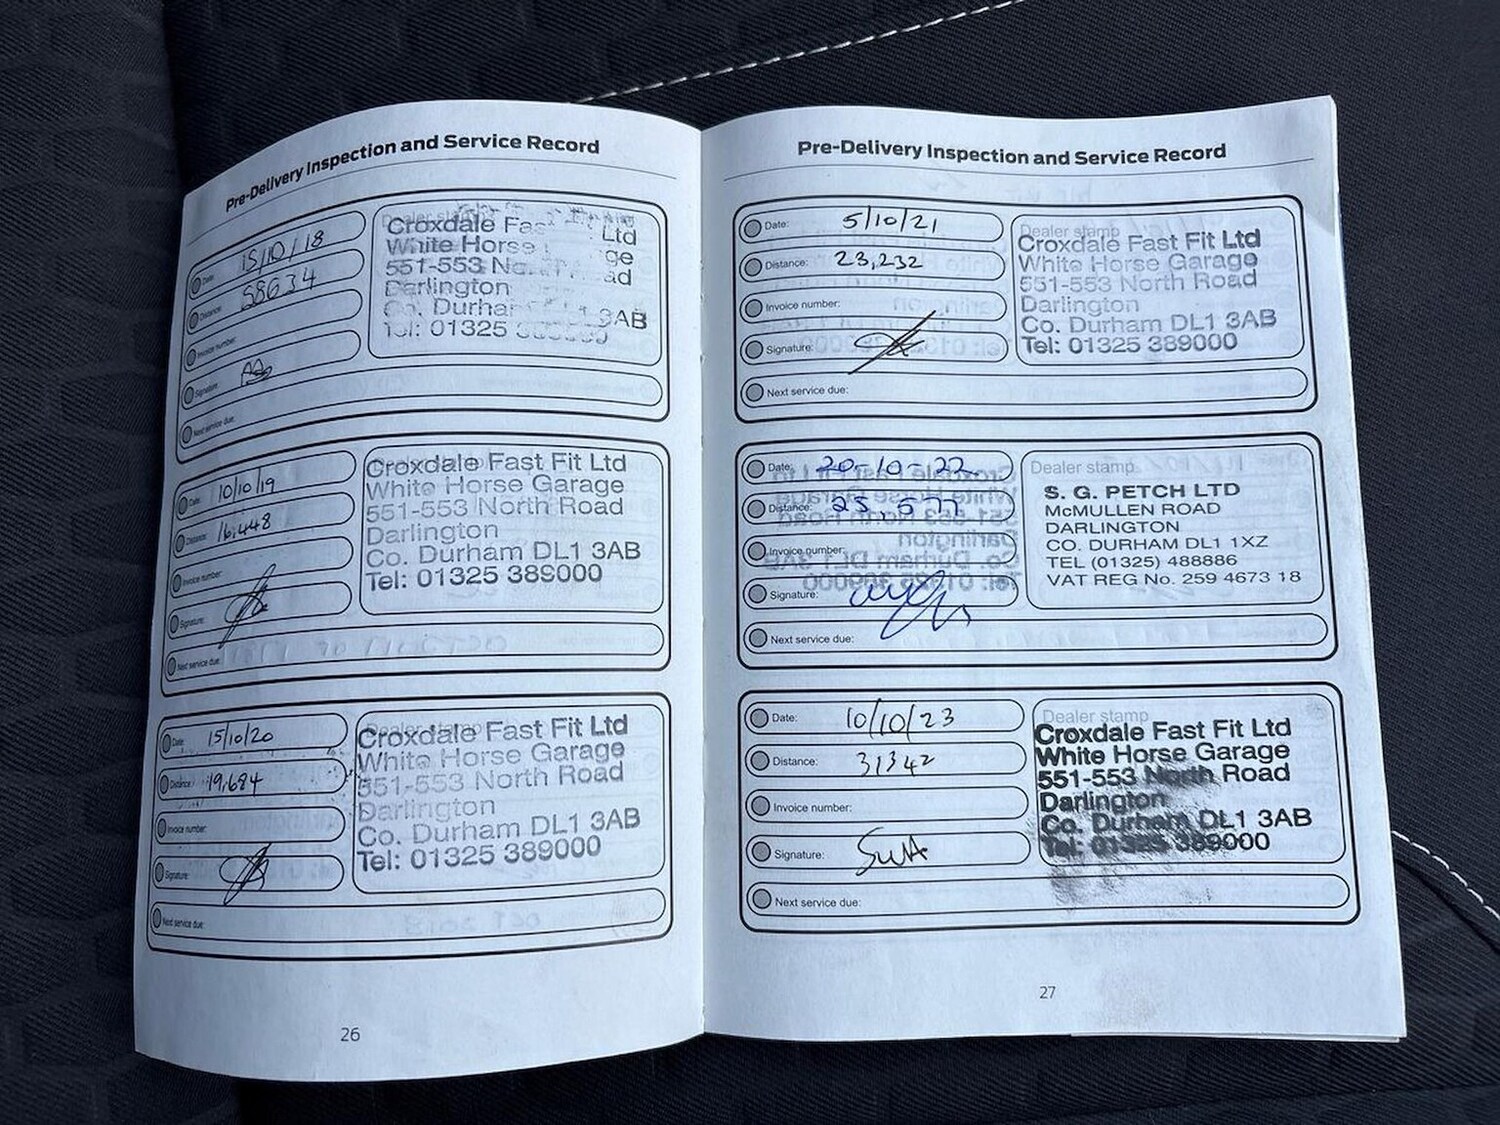 Pre-Delivery Inspection and Service Record
Date: 15/10/18
Distance: 58634
Invoice number:
Signature:
Next service due:
Croxdale Fas Ltd
White Horse ge
551-553 No ad
Darlington
Co. Durham 3AB
Tel: 01325
Date: 10/10/19
Distance: 16,448
Invoice number:
Signature:
Next service due:
Croxdale Fast Fit Ltd
White Horse Garage
551-553 North Road
Darlington
Co. Durham DL1 3AB
Tel: 01325 389000
Date: 15/10/20
Distance: 19,684
Invoice number:
Signature:
Next service due:
Dealer stamp
Croxdale Fast Fit Ltd
White Horse Garage
551-553 North Road
Darlington
Co. Durham DL1 3AB
Tel: 01325 389000
26
Pre-Delivery Inspection and Service Record
Date: 5/10/21
Distance: 23,232
Invoice number:
Signature:
Next service due:
Dealer stamp
Croxdale Fast Fit Ltd
White Horse Garage
551-553 North Road
Darlington
Co. Durham DL1 3AB
Tel: 01325 389000
Date: 20-10-22
Distance: 25,577
Invoice number:
Signature:
Next service due:
Dealer stamp
S. G. PETCH LTD
McMULLEN ROAD
DARLINGTON
CO. DURHAM DL1 1XZ
TEL (01325) 488886
VAT REG No. 259 4673 18
Date: 10/10/23
Distance: 31342
Invoice number:
Signature:
Next service due:
Dealer stamp
Croxdale Fast Fit Ltd
White Horse Garage
551-553 North Road
Darlington
Co. Durham DL1 3AB
Tel: 01325 389000
27